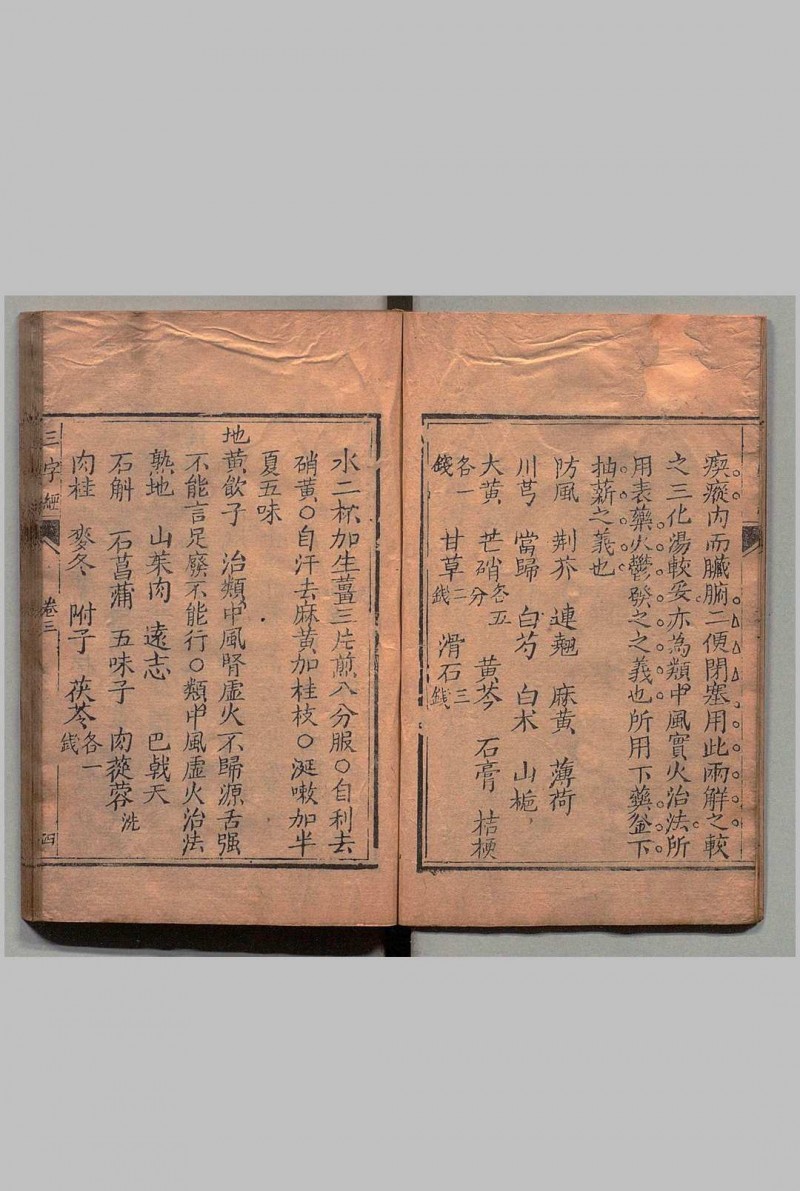 瘈瘲内而臓腑二便閉塞用此兩解之較
之三化湯較妥亦為類中風實火治法所
用表藥火鬱發之之義也所用下藥釜下
抽薪之義也
防風　荆芥　連翹　麻黄　薄荷
川芎　當歸　白芍　白术　山梔
大黄　芒硝各五分　黄芩　石膏　桔梗
各一錢　甘草二錢　滑石三錢
水二杯加生薑三片煎八分服○自利去
硝黄○自汗去麻黄加桂枝○涎嗽加半
夏五味
地黄飲子　治類中風腎虛火不歸源舌强
不能言足廢不能行○類中風虛火治法
熟地　山茱肉　遠志　巴戟天
石斛　石菖蒲　五味子　肉蓯蓉洗
肉桂　麥冬　附子　茯苓各一錢
三字經　卷三　四